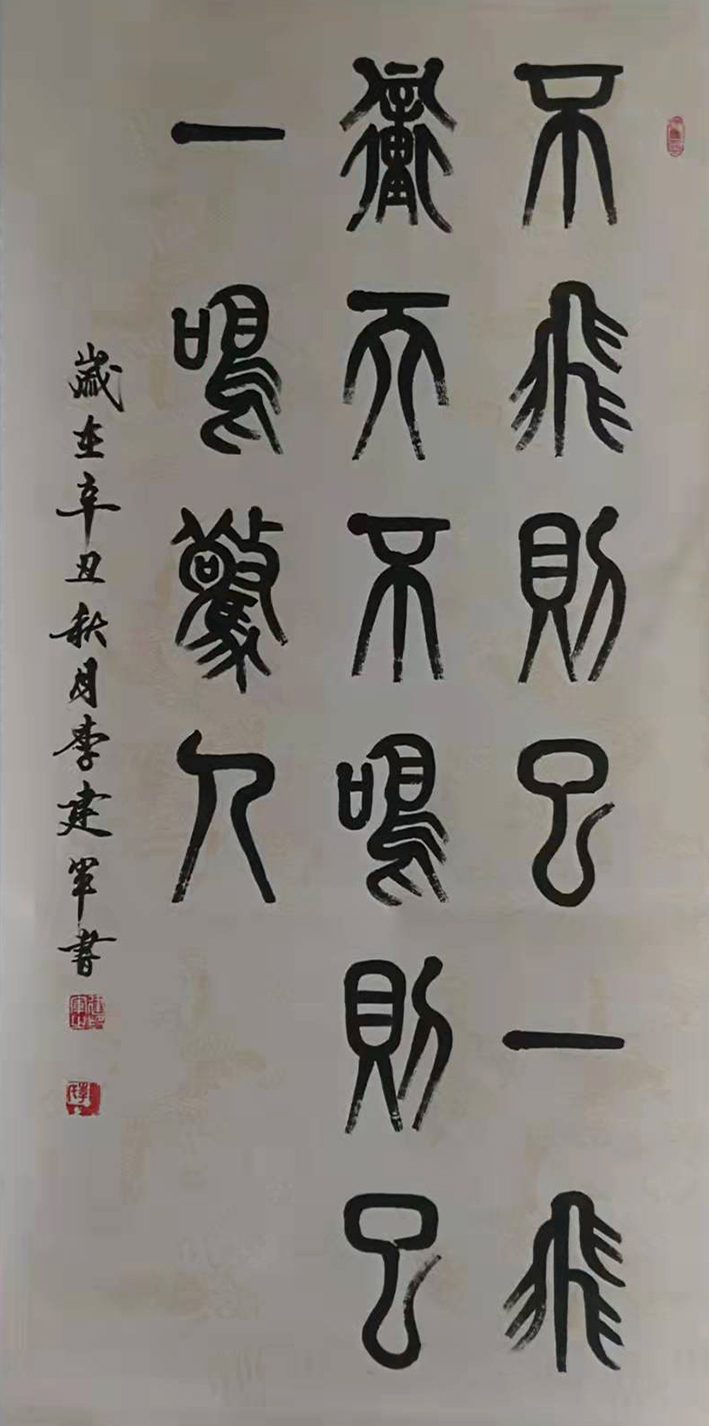 不飛則已一飛
衝天不鳴則已
一鳴驚人
歲在辛丑秋月李建軍書